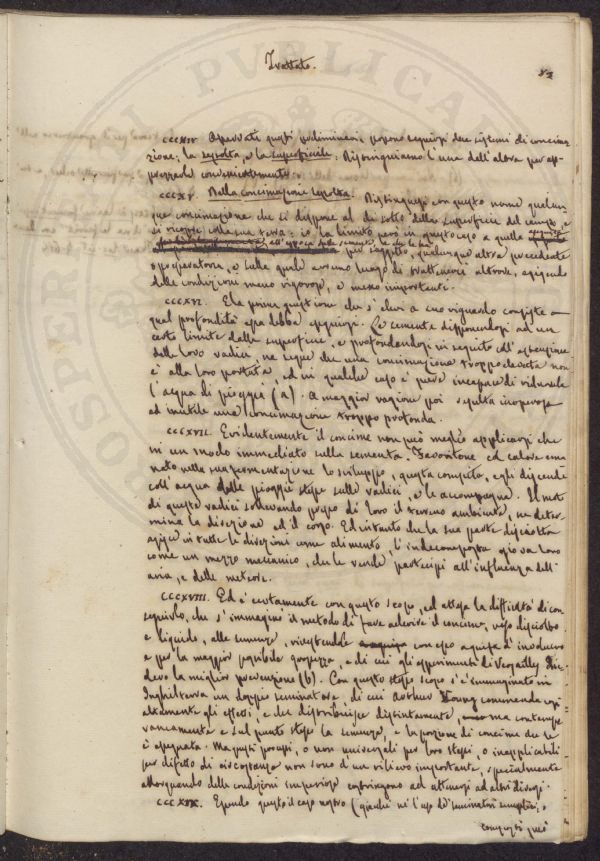 Trattato.
CCCXIV. Osservati questi preliminari, possono eseguirsi due sistemi di concima-
zione; la sepolta, e la superficiale. Distinguiamo l'una dell'altra per ap-
prezzarle convenientemente.
CCCXV. Della concimazione sepolta. Distinguesi con questo nome qualun-
que concimazione che si dispone al di sotto della superficie del campo, e
si ricopre colla sua terra: io la limito però in questo caso a quella
per soggetto, qualunque altra precedente
o preparatoria, e sulle quali avremo luogo di trattenerci altrove, esigendo
delle condizioni meno rigorose, e meno importanti.
CCCXVI. E la prima questione che s'elevi a suo riguardo consiste a
qual profondità essa debba eseguirsi. Le semente disponendosi ad un
certo limite dalla superficie, e profondandosi in seguito coll'estensione
delle loro radici, ne segue che una concimazione troppo elevata non
è alla loro portata, ed in qualche caso è pure incapace di ridursele
l'acqua di pioggia (a). A maggior ragione poi resulta inoperosa
ed inutile una concimazione troppo profonda.
CCCXVII. Evidentemente il concime non può meglio applicarsi che
in un modo immediato sulla sementa. Favoritone ed calore ema-
nato nella sua fermentazione lo sviluppo, questo compito, egli discende
coll'acqua delle pioggie stesse sulle radici, e le accompagna. Il moto
di queste radici sollevando presso di loro il terreno ambiente, ne deter-
mina la direzione ed il corso. Ed intanto che la sua parte disciolta
agisce in tutte le direzioni come alimento, l'indecomposta giova loro
come un mezzo meccanico, che le rende partecipi all'influenza dell'
aria, e delle meteore.
CCCXVIII. Ed è certamente con questo scopo, ed attesa la difficoltà di con-
seguirlo, che s'immaginò il metodo di fare aderire il concime, reso disciolto
e liquido, alle semenze, rivestendole con esso a guisa d'involucro
e per la maggior possibile grossezza, e di cui gli esperimenti di Versailles die-
dero la miglior prevenzione (b). Con questo stesso scopo s'è immaginato in
Inghilterra un doppio seminatore, di cui Arthur Young commenda espe-
altamente gli effetti, e che distribuisce distintamente, ma contempo-
raneamente e sul punto stesso la semenza, e la porzione di concime che le
è assegnata. Ma questi processi, o non universali per loro stessi, o inapplicabili
per difetto di circostanze non sono d'un rilievo importante, specialmente
allorquando delle condizioni imperiose costringono ad attenersi ad altri diversi.
CCCXIX. Essendo questo il caso nostro (giacchè nè l'uso de' seminatori semplici, o
composti può